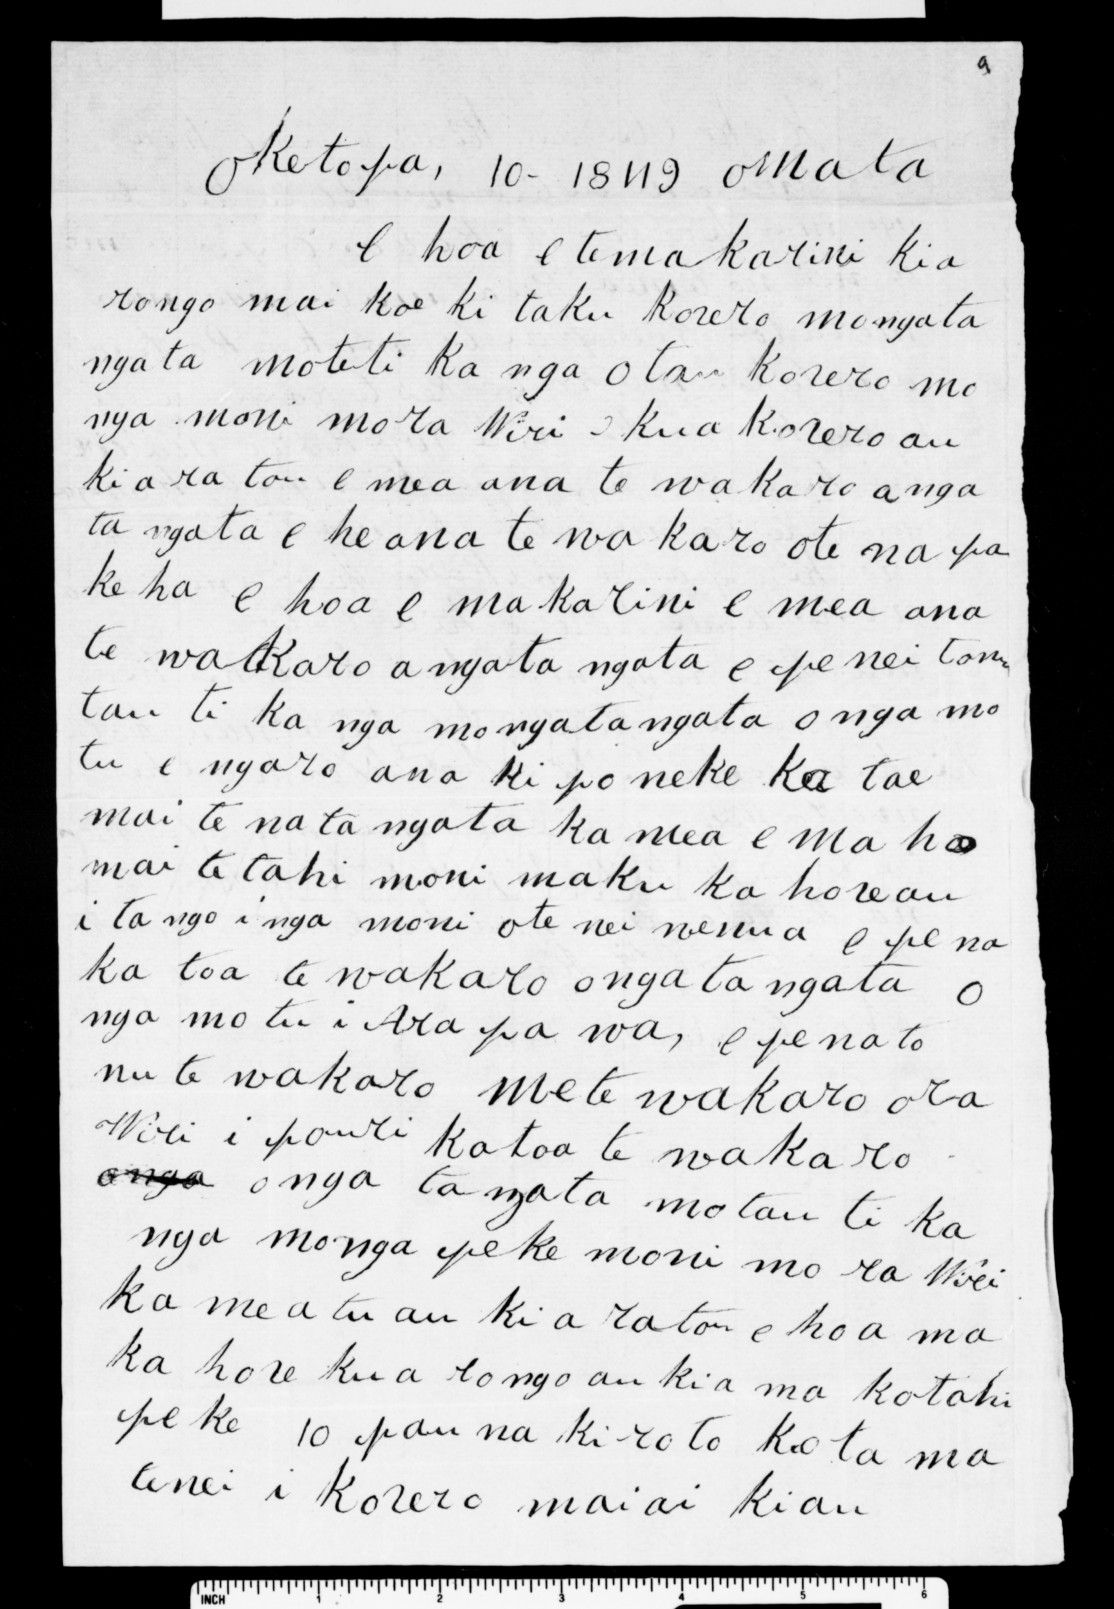 9
Oketopa, 10- 1849 omata
e hoa e temakarini kia
rongo mai koe ki taku korero mongata
ngata moteti ka nga o tau korero mo
nga moni mo ra Wiri kua korero au
ki a ra tou e mea ana te wakaro anga
ta ngata e he ana te wakaro ote na pa
ke ha e hoa e makarini e mea ana
te wakaro a ngata ngata e pe nei tonu
tau ti ka nga mo ngatangata o nga mo
tu e ngaro ana ki po neke ka tae
mai te na ta ngata ka mea e ma ho
mai te tahi moni maku ka hore au
i ta ngo i nga moni ote nei wenua e pe na
ka toa te wakaro onga ta ngata o
nga mo tu i Ara pa wa, e pe na to
nu te wakaro me te wakaro ora
Wiri i pouri katoa te wakaro
onga onga tangata motau ti ka
nga monga peke moni mo ra Wiri
ka me a tu au ki a ratou e hoa ma
ka hore kua rongo au kia ma kotahi
pe ke 10 pau na ki roto ko ta ma
tenei i korero maiai kiau
INCH 1 2 3 4 5 6